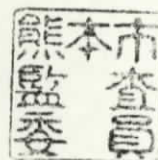 熊本市
監査
委員